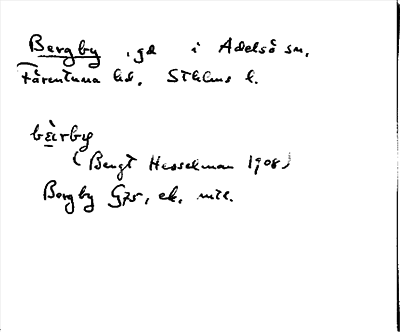 Bergby, gd i Adelsö sn,
Färentuna hd, Sthlms l.
bèrby
(Bengt Hesselman 1908)
Bergby G75, ek, mtl.